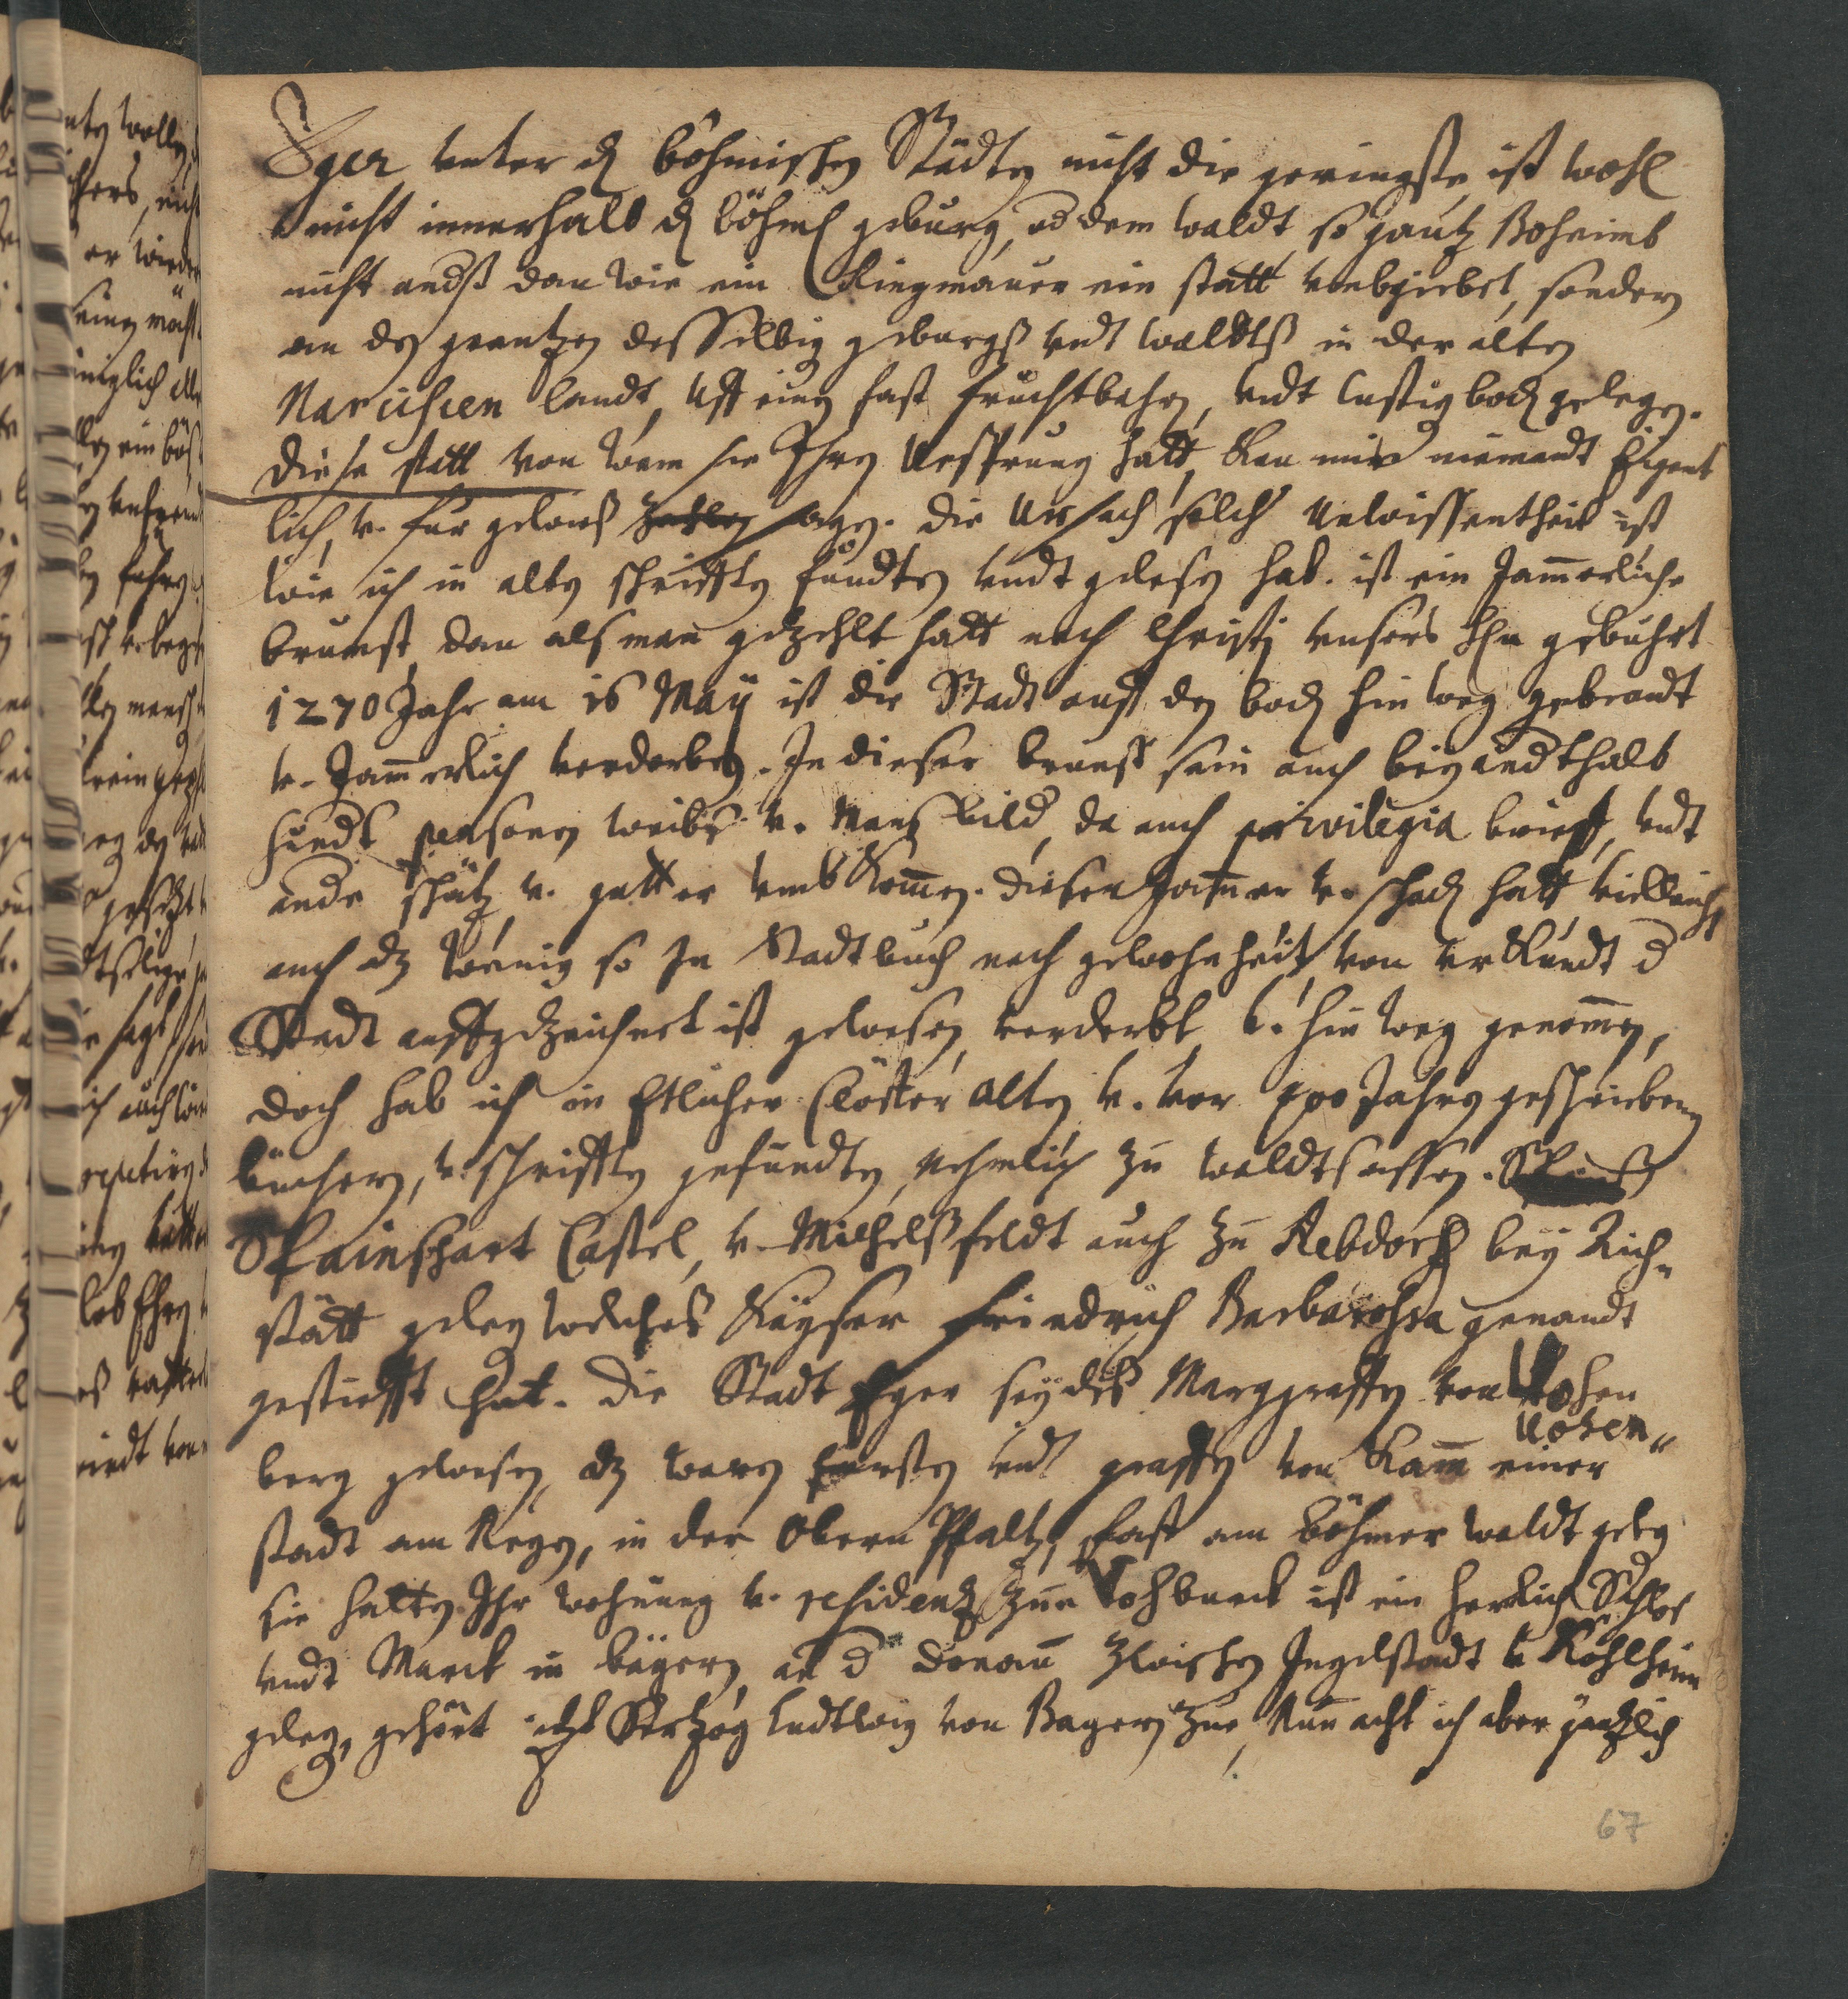 Eger unter d böhmischen Städten nicht die geringste, ist wohl
nicht innerhalb d böhm geburg, od dem waldt, so gantz Boheimb
nicht andß dan wie ein Ringmauer ein statt umbgiebet, sondern
an den grentzen desselbig geburgß undt waldtß in der alten
Nariscien landt, uff einen fast fruchtbahren, undt lustig bod gelegen.
Diese statt von wem sie Ihren Ursprung hatt, kan mir niemandt Eigent
lich, v. für gewieß sagen. die Ursach solch Unwissentheit ist
wie ich in alten schrifften fundten undt gelesen hab. ist ein Jam̄erliche
brunst, dan alß man gezehlt hatt nach Christi unsers H gebuhrt
1270 Jahr am 16 Maÿ ist die Stadt auß den bod hin weg gebrandt
v. Jam̄erlich verdorben. In dieser brunst sein auch beÿ andthalb
hundt personen weibs v. Manß bild, da auch privilegia brieff, undt
ande schätz v. gutter umbkom̄en. dieser Jam̄er v. schad hatt villeicht
auch dz wenig so In Stadtbuch nach gewohnheit von urkundt d
Stadt auffgezeichnet ist gewesen, verderbt v. hin weg genom̄en,
doch hab ich in Etlicher Clöster alten v. vor 400 Jahren geschriebenen
büchern, v. schrifften gefundten, nehmlich zu waldtsassen.
Spainshart Castel, v. Michelßfeldt auch zu Rebdorff beÿ Aich-
stätt geleg welches Kaÿser Friedrich Barbarossa genandt
gestiefft hat. Die Stadt Eger seÿ des Marggraffen von Vohen
Vohen-
berg gewesen, dz waren Fürsten undt graffen von Kam̄ einer
stadt am Regen, in der Obern Pfaltz, fast am böhmer waldt geleg
sie hatten Ihr wohnung v. residentz zu Vohburck ist ein herrlich Schlos
undt Marck in baÿern, an d donau zwischen Ingelstadt v Köhlheim
geleg, gehört itzt Hertzog Ludtwig von Bayern zue, Nun acht ich aber gentzlich
67